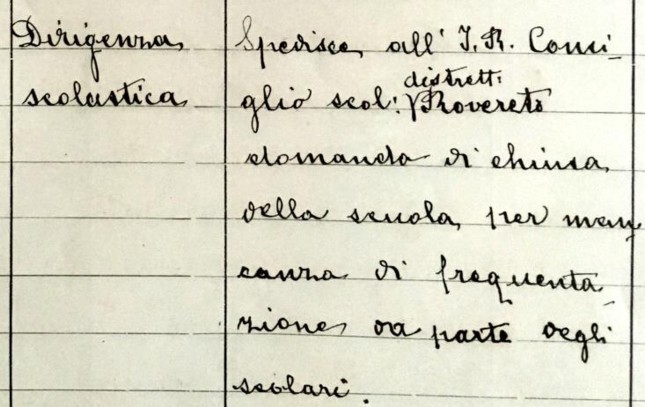 Dirigenza
scolastica
Spedisce all' I. R. Consi-
distrett:
glio scol: Rovereto
domanda di chiusa
della scuola per man
canza di frequenta-
zione da parte degli
scolari.